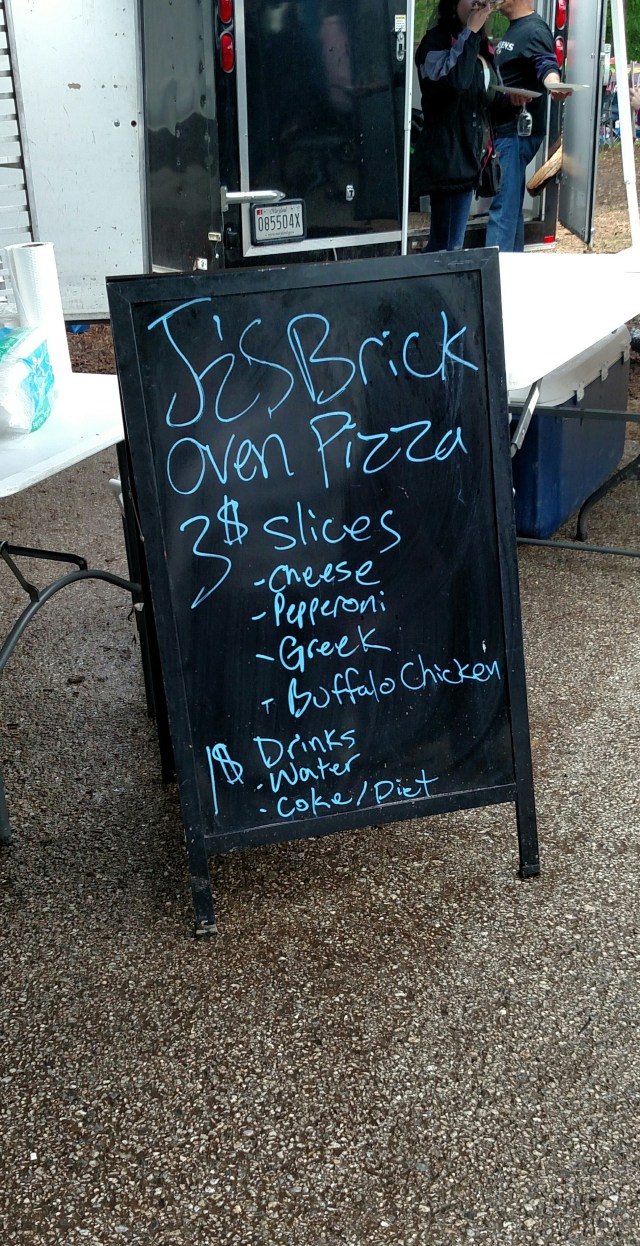 J'sBrick
oven Pizza
3$ slices
-cheese
-Pepperoni
-Greek
- Buffalo Chicken
1$ Drinks
- Water
- Coke/Diet
085504X